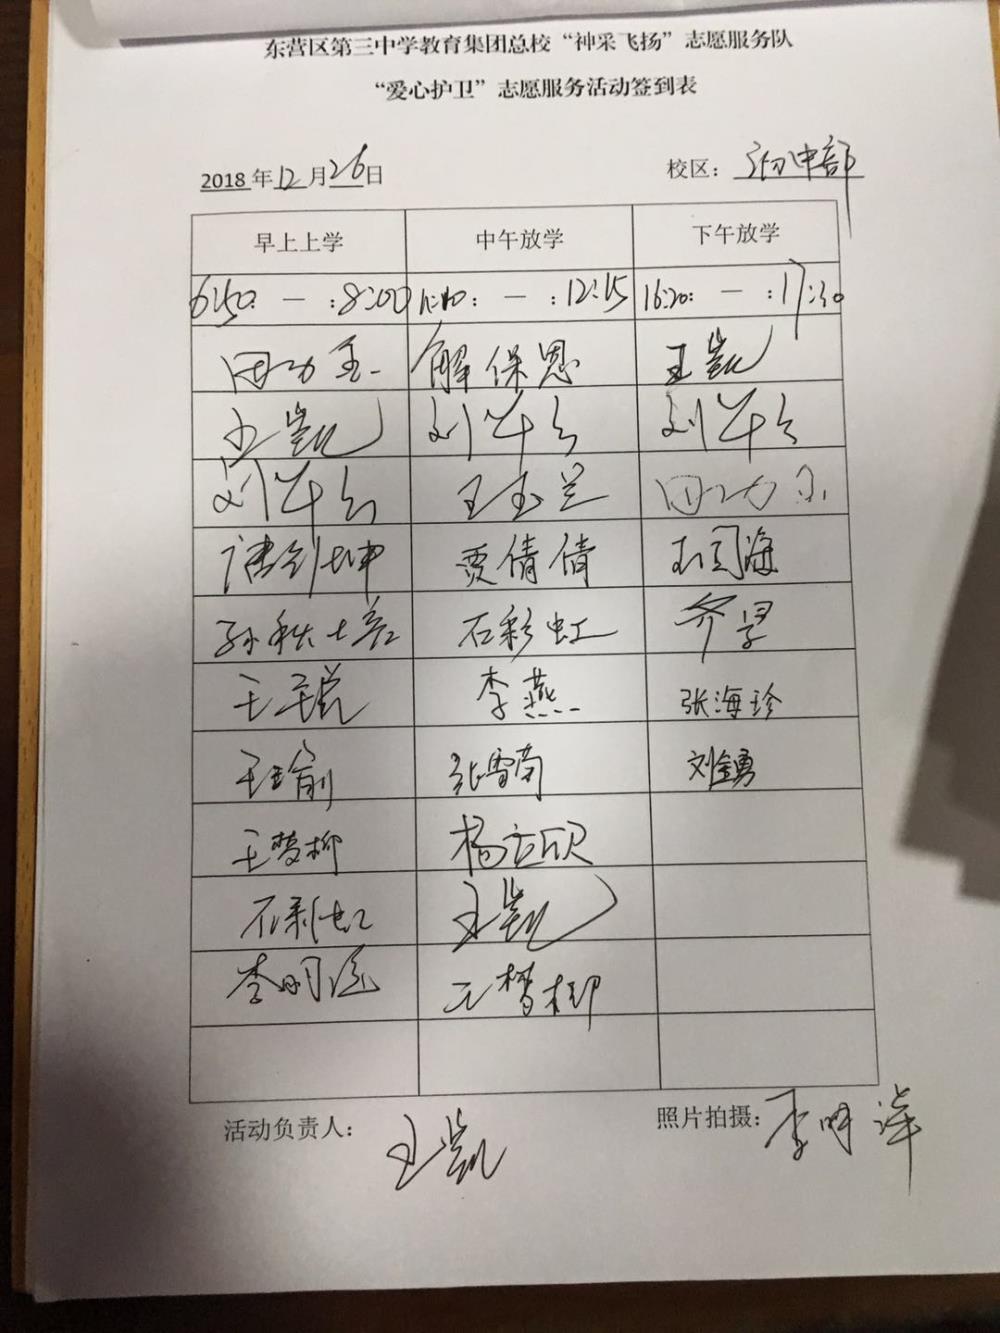 东营区第三中学教育集团总校“神采飞扬”志愿服务队
“爱心护卫”志愿服务活动签到表
2018年12月26日 校区：初中部
早上上学 中午放学 下午放学
6:50: — :8:00 11:40: — :12:15 16:20: — :17:30
田功玉 解保恩 王凯
王凯 刘军云 刘军云
刘军云 王玉兰 田功玉
贾倩倩
石彩虹 齐星
李燕 张海珍
王瑜 张雪菊 刘金勇
王梦柳 杨立欣
石彩虹 王凯
李明洋 王梦柳
活动负责人：王凯 照片拍摄：李明洋